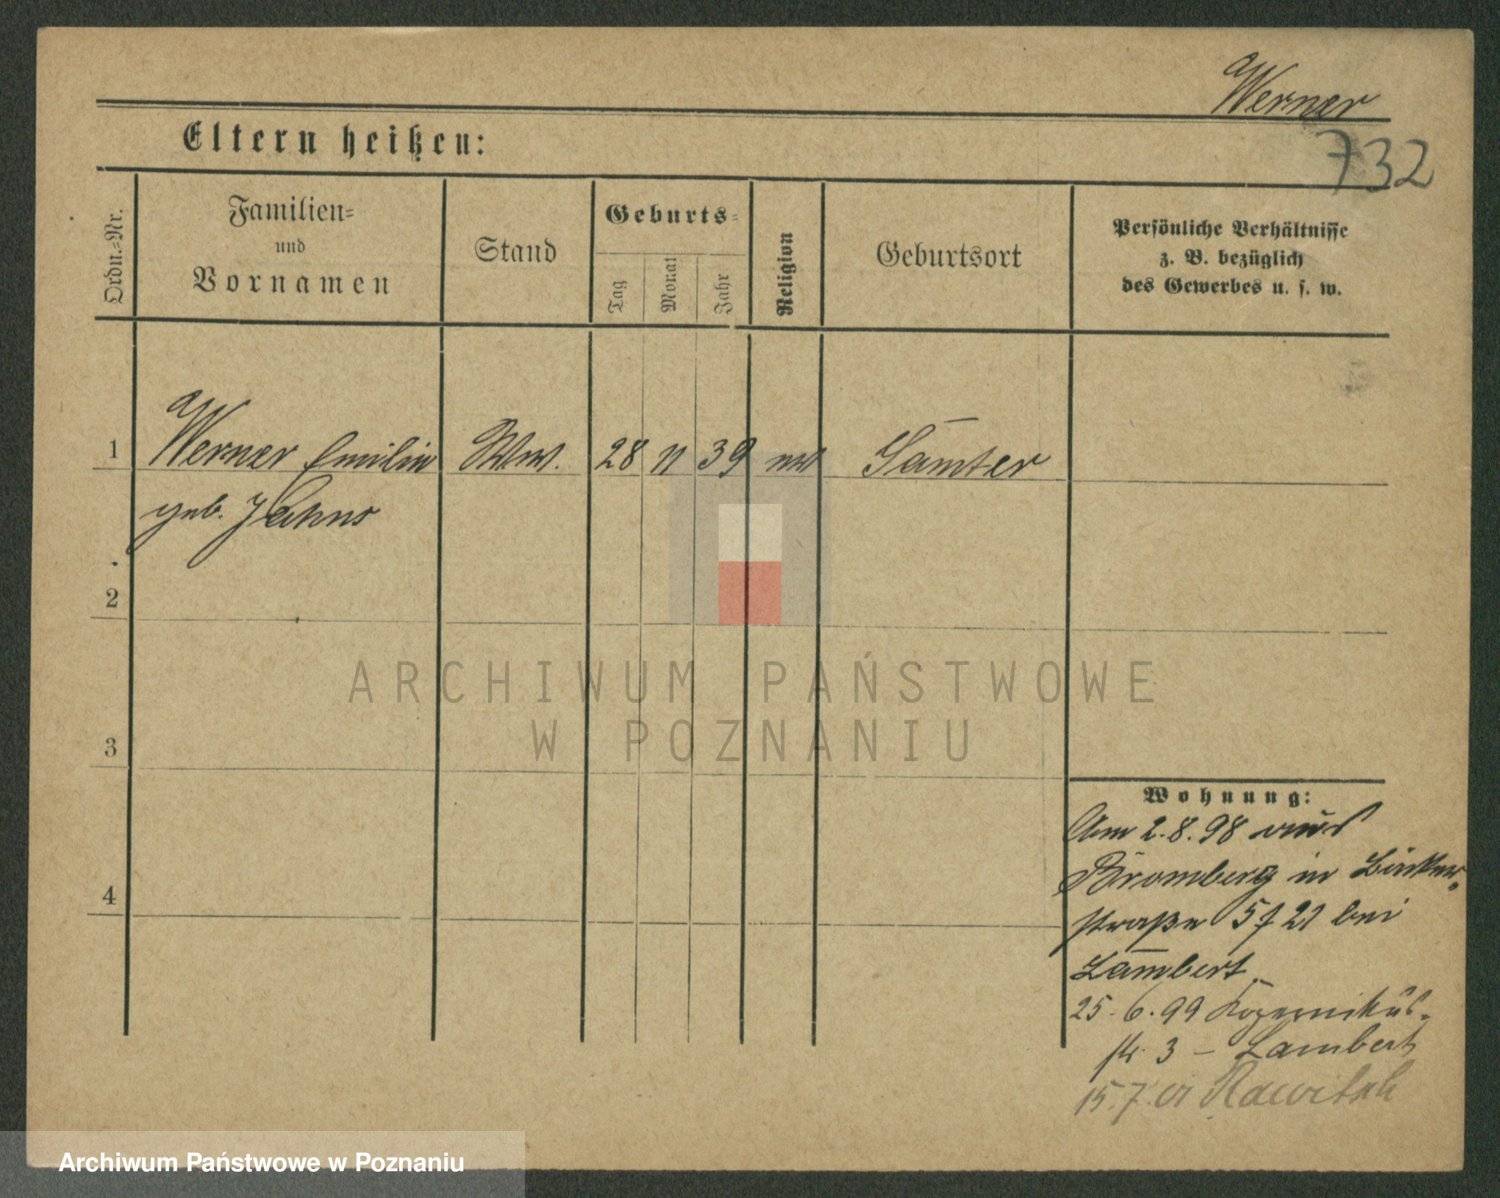 Werner
Eltern heißen:
732
Ordn.=Nr.
Familien=
und
Vornamen
Stand
Geburts=
Tag
Monat
Jahr
Religion
Geburtsort
Persönliche Verhältnisse
z. B. bezüglich
des Gewerbes u. s. w.
1
Werner Emilie Ww. 28 11 39 Samter
geb. Jahns
2
3
4
ARCHIWUM PAŃSTWOWE
W POZNANIU
Wohnung:
Am 2.8.98 aus
Bromberg in Bäcker=
straße 5 f 21 bei
Lambert.
25.6.99 Kopernikus=
str. 3 – Lambert
15.7. Rawitsch
Archiwum Państwowe w Poznaniu